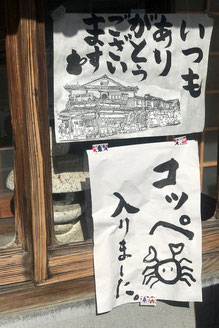 いつも
ありがとう
ございます
コッペ
入りました。